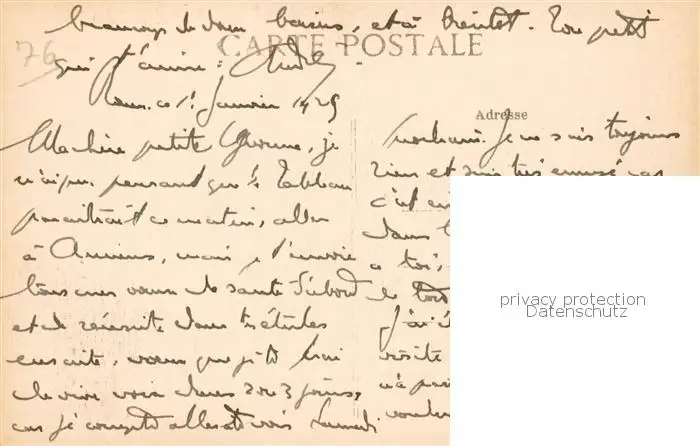 beaucoup de doux baisers, et à bientôt. Ton petit
CARTE POSTALE
76
qui t'aime : André.
ce 1er Janvier 1929
Adresse
Ma chère petite Yvonne, je
n'ai pu, pensant que le tableau
paraîtrait ce matin, aller
à Amiens, mais je t'envoie
tous mes vœux de santé d'abord
et de réussite dans tes études
ensuite, vœux que je te
de vive voix dans 2 ou 3 jours,
car je compte aller te voir Samedi
prochain. Je suis toujours
rien et suis très ennuyé car
c'est
dans
à toi,
de
J'ai
visite
n'a pas
privacy protection
Datenschutz